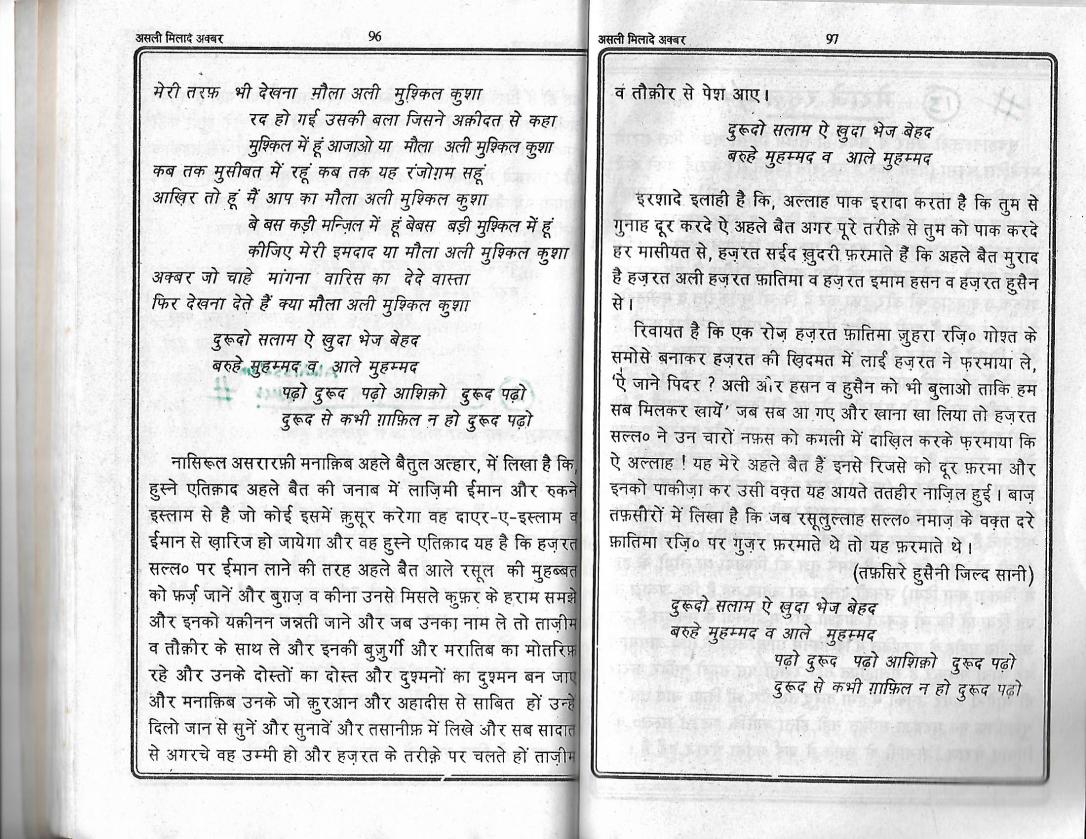 असली मिलादे अक्बर 96
मेरी तरफ़ भी देखना मौला अली मुश्किल कुशा
रद हो गई उसकी बला जिसने अक़ीदत से कहा
मुश्किल में हूं आजाओ या मौला अली मुश्किल कुशा
कब तक मुसीबत में रहूं कब तक यह रंजोग़म सहूं
आख़िर तो हूं मैं आप का मौला अली मुश्किल कुशा
बे बस कड़ी मन्ज़िल में हूं बेबस बड़ी मुश्किल में हूं
कीजिए मेरी इमदाद या मौला अली मुश्किल कुशा
अक्बर जो चाहे मांगना वारिस का देदे वास्ता
फिर देखना देते हैं क्या मौला अली मुश्किल कुशा
दुरूदो सलाम ऐ खुदा भेज बेहद
बरुहे मुहम्मद व आले मुहम्मद
पढ़ो दुरूद पढ़ो आशिको दुरूद पढ़ो
दुरूद से कभी ग़ाफ़िल न हो दुरूद पढ़ो
नासिरूल असरारफ़ी मनाक़िब अहले बैतुल अल्हार, में लिखा है कि,
हुस्ने एतिक़ाद अहले बैत की जनाब में लाज़िमी ईमान और रुकने
इस्लाम से है जो कोई इसमें क़ुसूर करेगा वह दाएर-ए-इस्लाम व
ईमान से ख़ारिज हो जायेगा और वह हुस्ने एतिक़ाद यह है कि हज़रत
सल्ल० पर ईमान लाने की तरह अहले बैत आले रसूल की मुहब्बत
को फ़र्ज़ जानें और बुग़ज़ व कीना उनसे मिसले कुफ़र के हराम समझे
और इनको यक़ीनन जन्नती जाने और जब उनका नाम ले तो ताज़ीम
व तौक़ीर के साथ ले और इनकी बुज़ुर्गी और मरातिब का मोतरिफ़
रहे और उनके दोस्तों का दोस्त और दुश्मनों का दुश्मन बन जाए
और मनाक़िब उनके जो क़ुरआन और अहादीस से साबित हों उन्हें
दिलो जान से सुनें और सुनावें और तसानीफ़ में लिखे और सब सादात
से अगरचे वह उम्मी हो और हज़रत के तरीक़े पर चलते हों ताज़ीम
असली मिलादे अक्बर 97
व तौक़ीर से पेश आए।
दुरूदो सलाम ऐ खुदा भेज बेहद
बरुहे मुहम्मद व आले मुहम्मद
इरशादे इलाही है कि, अल्लाह पाक इरादा करता है कि तुम से
गुनाह दूर करदे ऐ अहले बैत अगर पूरे तरीक़े से तुम को पाक करदे
हर मासीयत से, हज़रत सईद ख़ुदरी फ़रमाते हैं कि अहले बैत मुराद
है हज़रत अली हज़रत फ़ातिमा व हज़रत इमाम हसन व हज़रत हुसैन
से।
रिवायत है कि एक रोज़ हज़रत फ़ातिमा ज़ुहरा रज़ि० गोश्त के
समोसे बनाकर हज़रत की ख़िदमत में लाई हज़रत ने फ़रमाया ले,
'ऐ जाने पिदर ? अली और हसन व हुसैन को भी बुलाओ ताकि हम
सब मिलकर खायें' जब सब आ गए और खाना खा लिया तो हज़रत
सल्ल० ने उन चारों नफ़स को कमली में दाख़िल करके फ़रमाया कि
ऐ अल्लाह ! यह मेरे अहले बैत हैं इनसे रिजसे को दूर फ़रमा और
इनको पाकीज़ा कर उसी वक़्त यह आयते ततहीर नाज़िल हुई। बाज़
तफ़सीरों में लिखा है कि जब रसूलुल्लाह सल्ल० नमाज़ के वक़्त दरे
फ़ातिमा रज़ि० पर गुज़र फ़रमाते थे तो यह फ़रमाते थे।
(तफ़सिरे हुसैनी जिल्द सानी)
दुरूदो सलाम ऐ खुदा भेज बेहद
बरुहे मुहम्मद व आले मुहम्मद
पढ़ो दुरूद पढ़ो आशिको दुरूद पढ़ो
दुरूद से कभी ग़ाफ़िल न हो दुरूद पढ़ो